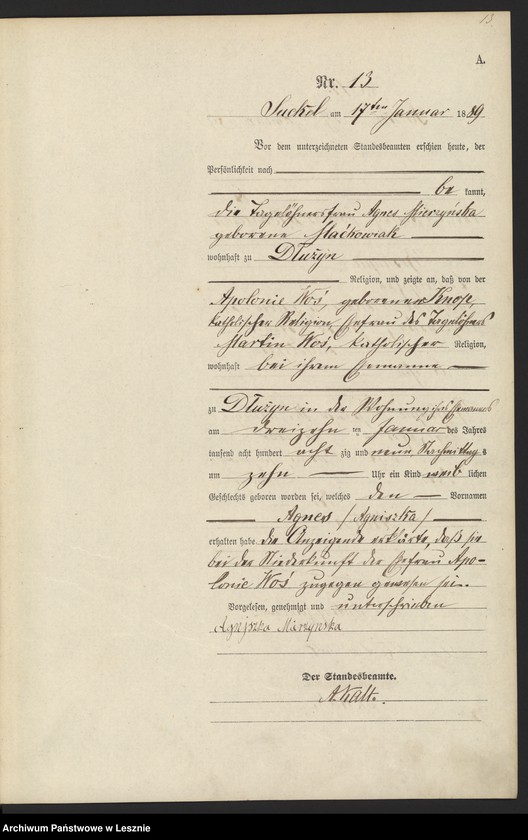 13.
A.
Nr. 13
Suckel am 17ten Januar 1889
Vor dem unterzeichneten Standesbeamten erschien heute, der
Persönlichkeit nach
be kannt,
die Tagelöhnersfrau Agnes Mierzyńska
geborene Maćkowiak
wohnhaft zu Dłużyn
Religion, und zeigte an, daß von der
Apolonie Woś, geborenen Knop,
katholischer Religion, Ehefrau des Tagelöhners
Martin Woś, katholischer Religion,
wohnhaft bei ihrem Ehemanne
zu Dłużyn in der Wohnung ihres Ehemannes
am dreizehn ten Januar des Jahres
tausend acht hundert acht zig und neun Nachmittags
um zehn Uhr ein Kind weib lichen
Geschlechts geboren worden sei, welches den Vornamen
Agnes /Agniszka/
erhalten habe. die Anzeigende erklärte, daß sie
bei der Niederkunft der Ehefrau Apo-
lonie Woś zugegen gewesen sei.
Vorgelesen, genehmigt und unterschrieben
Agniszka Mirzynska
Der Standesbeamte.
Archiwum Państwowe w Lesznie